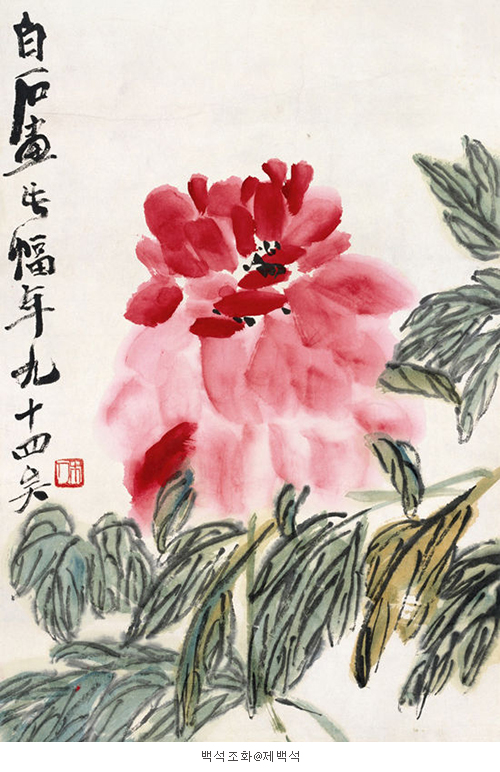 白石畫此幅年九十四矣
백석조화@제백석